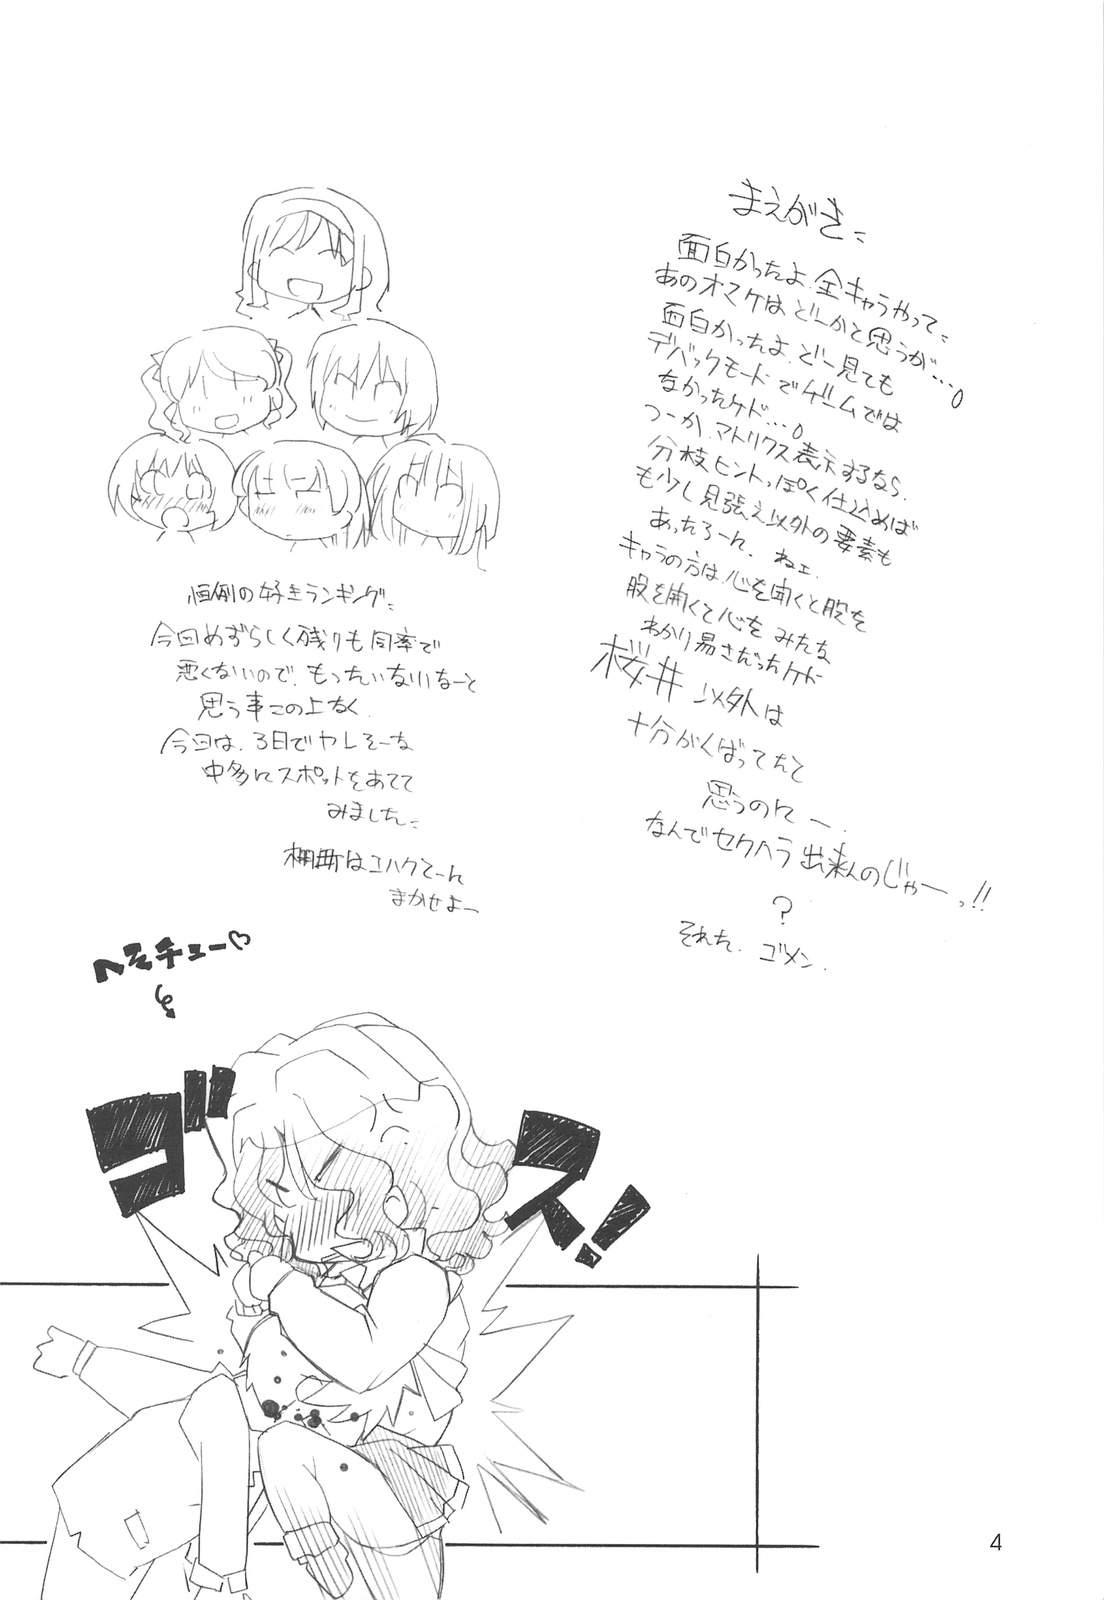 まえがき：
面白かったよ、全キャラやって：
あのオマケはどーかと思うが…。
面白かったよ、どー見ても
デバックモードでゲームでは
なかったケド…。
つーか、マトリクス表示するなら、
分枝ヒントっぽく仕込めば
も少し見張え以外の要素も
あったろーん、ねェ、
キャラの方は、心を開くと股を
股を開くと心をみたな
わかり易さだったケド
桜井以外は
十分がんばってたと
思うのにー、
なんでセクハラ出来んのじゃーっ!!
?
それた、ゴメン、
恒例の好きランキング：
今回めずらしく残りも同率で
悪くないので、もったいないなーと
思う事この上なく、
今回は、3日でヤレそーな
中多にスポットをあてて
みました：
棚町はコハクてーん
まかせよー
ヘそチュー♡
ゴス!
4